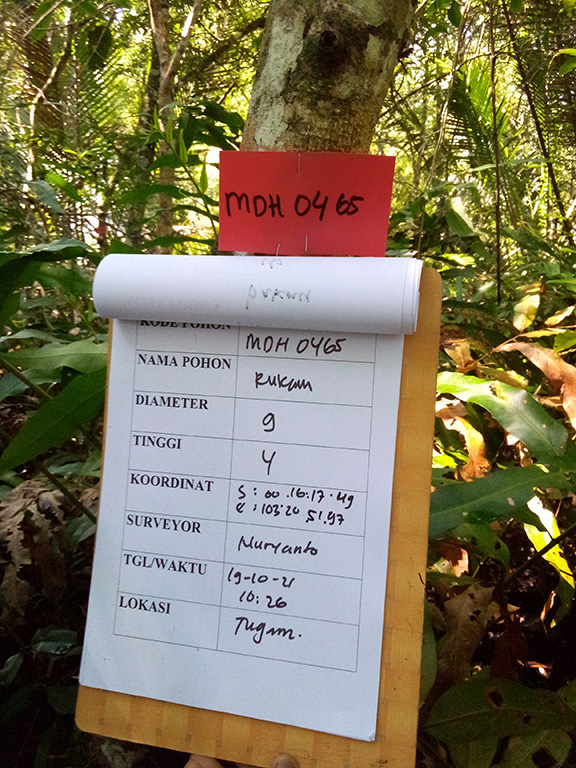 MDH 0465
KODE POHON MDH 0465
NAMA POHON Rukam
DIAMETER 9
TINGGI 4
KOORDINAT S : 00.16.17.49
E : 103.20.51.97
SURVEYOR Muryanto
TGL/WAKTU 19-10-21
10:26
LOKASI